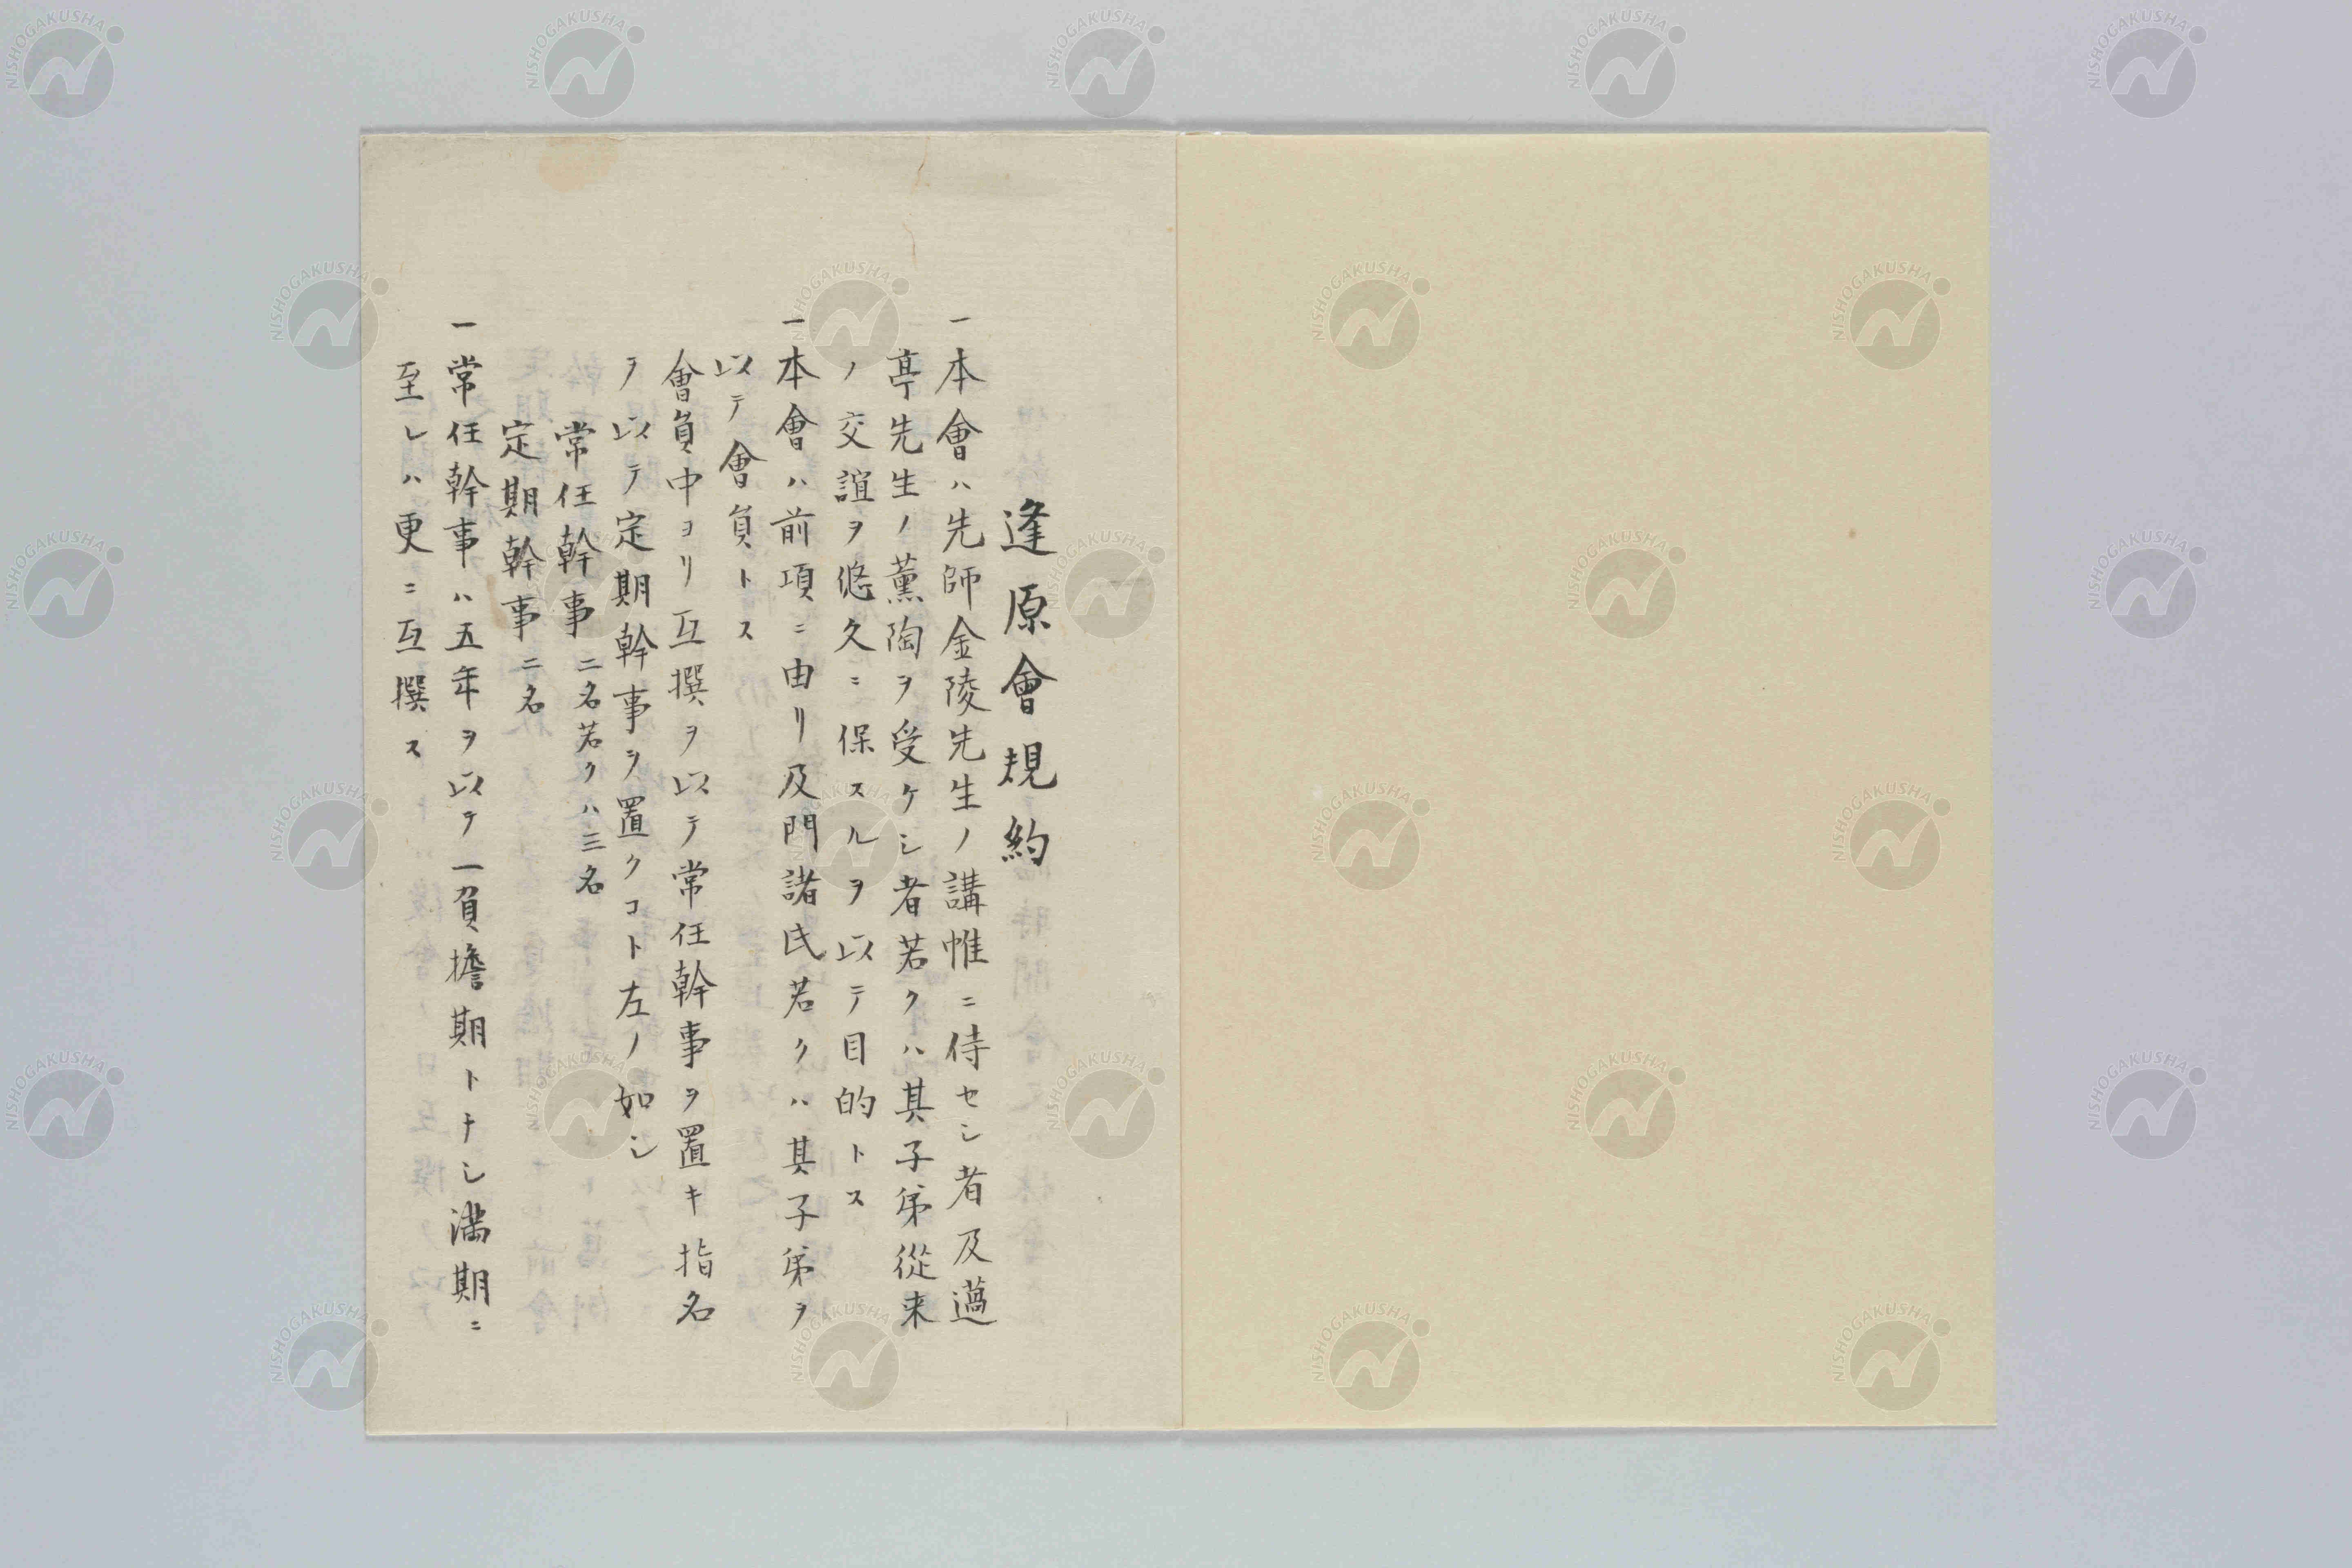 逢原會規約
一本會ハ先師金陵先生ノ講帷ニ侍セシ者及薖
亭先生ノ薫陶ヲ受ケシ者若クハ其子弟從来
ノ交誼ヲ悠久ニ保スルヲ以テ目的トス
一本會ハ前項ニ由リ及門諸氏若クハ其子弟ヲ
以テ會員トス
會員中ヨリ互撰ヲ以テ常任幹事ヲ置キ指名
ヲ以テ定期幹事ヲ置クコト左ノ如シ
常任幹事二名若クハ三名
定期幹事二名
一常任幹事ハ五年ヲ以テ一負擔期トナシ満期ニ
至レハ更ニ互撰ス
NISHOGAKUSHA